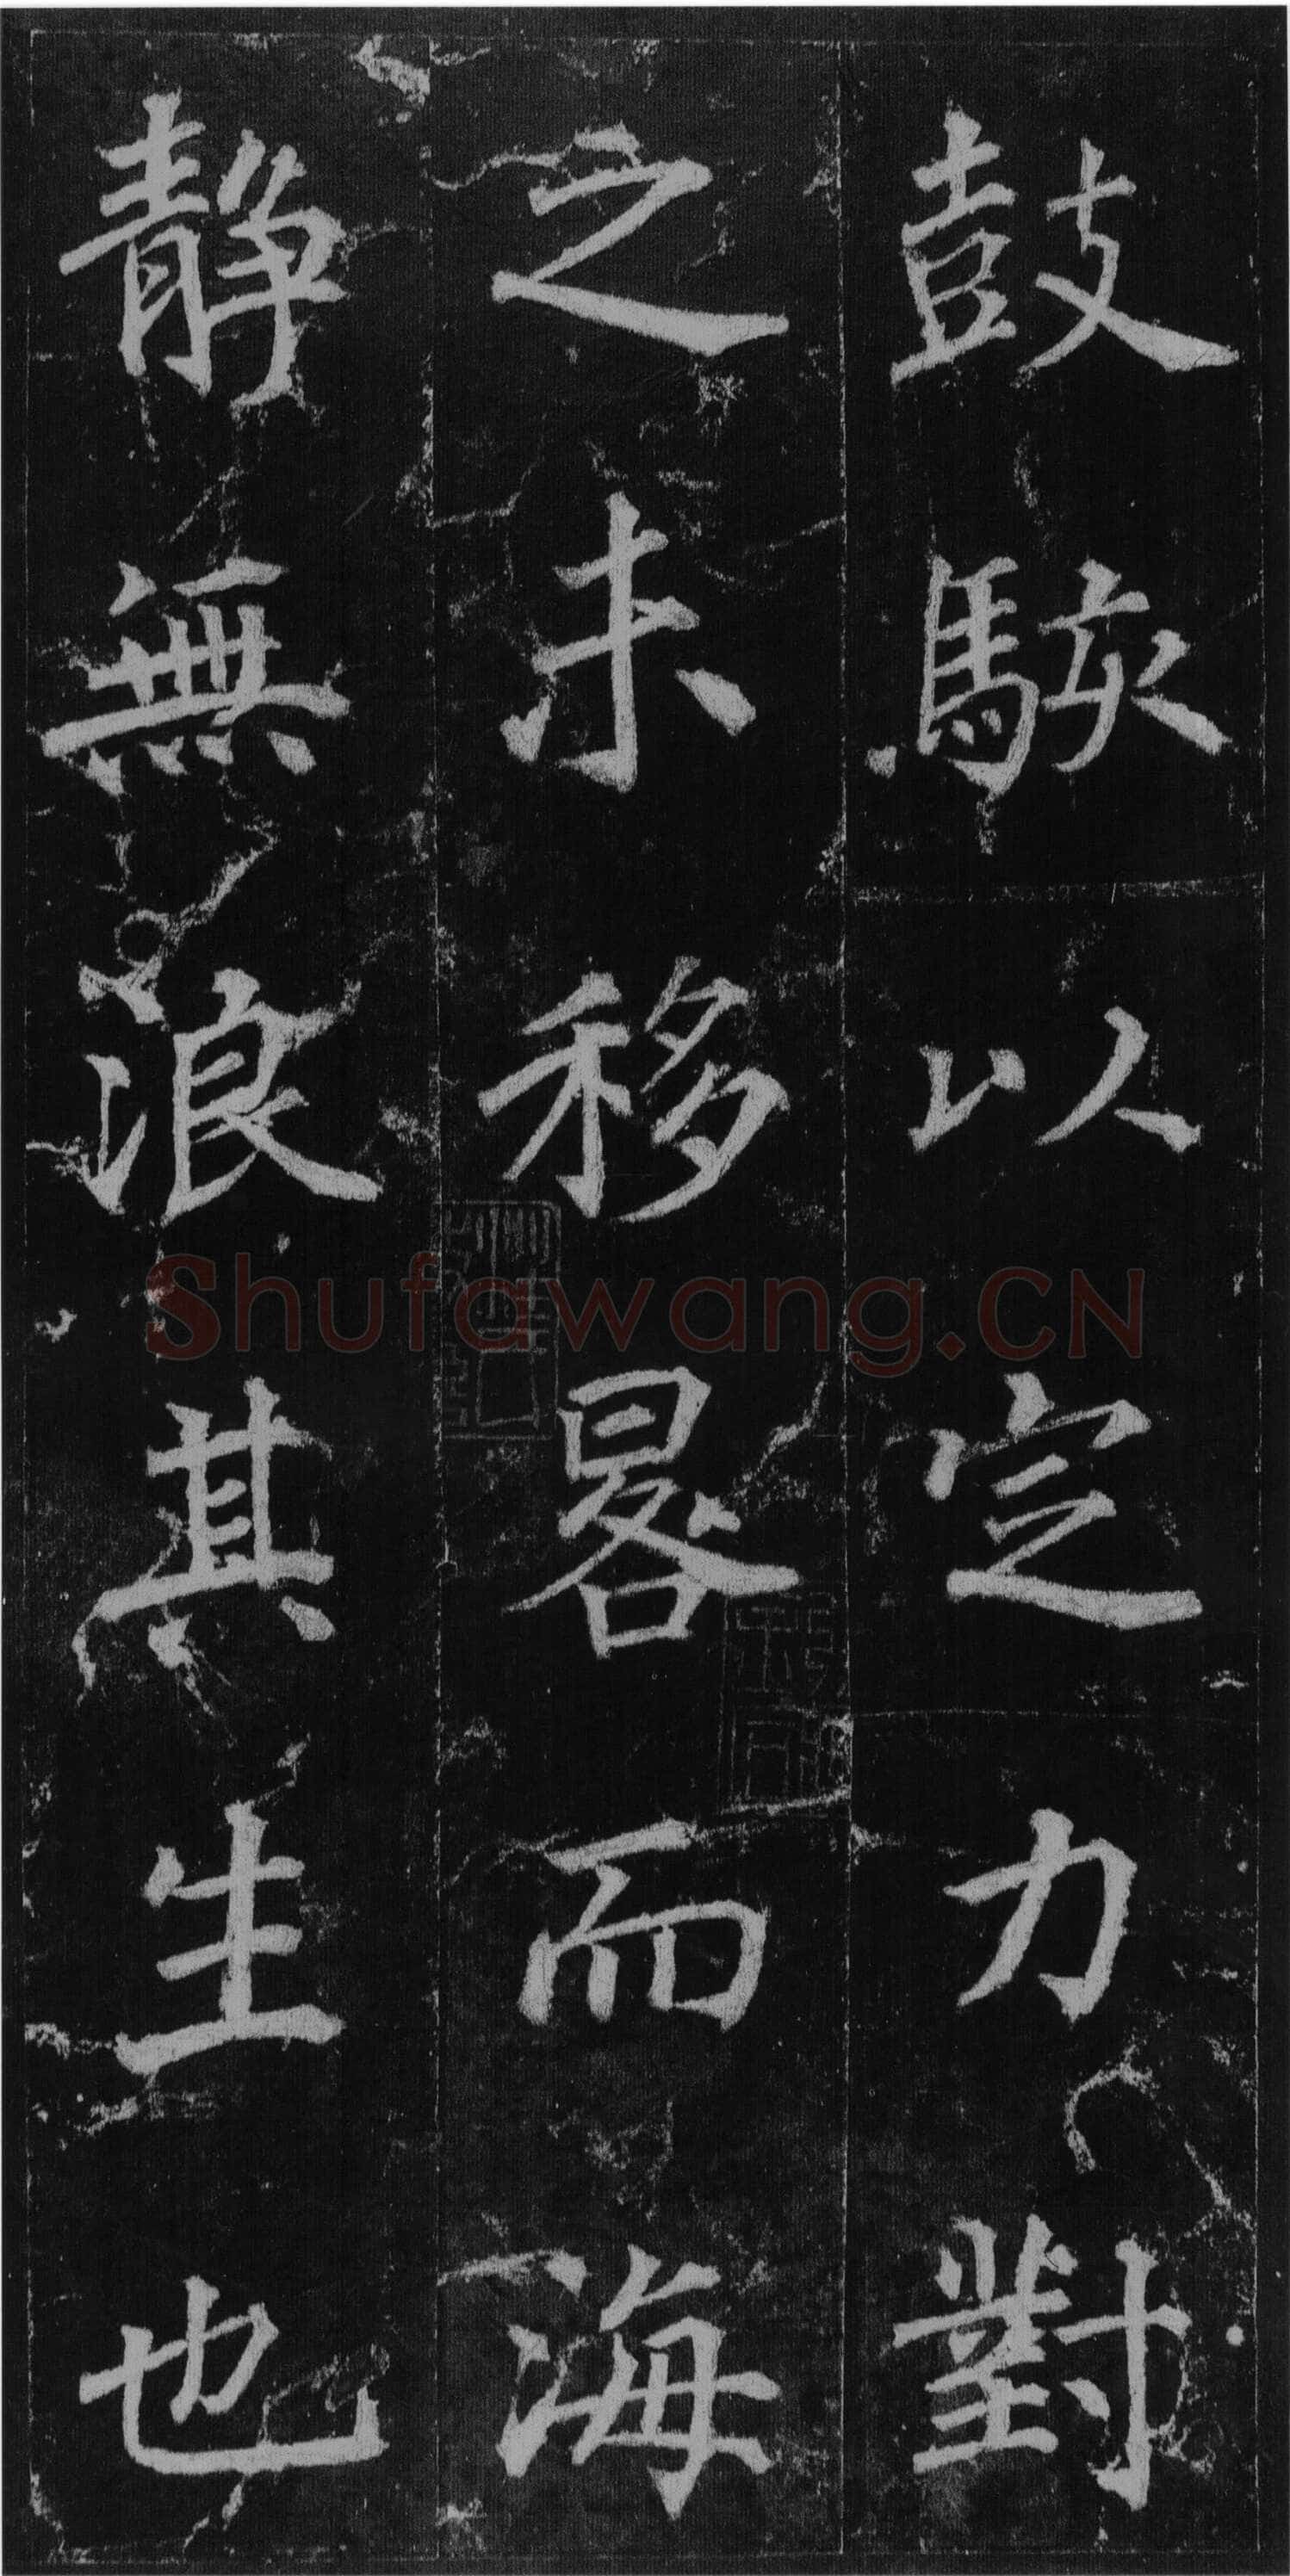 鼓駭以定力對
之未移晷而海
靜無浪其生也
Shufawang.CN